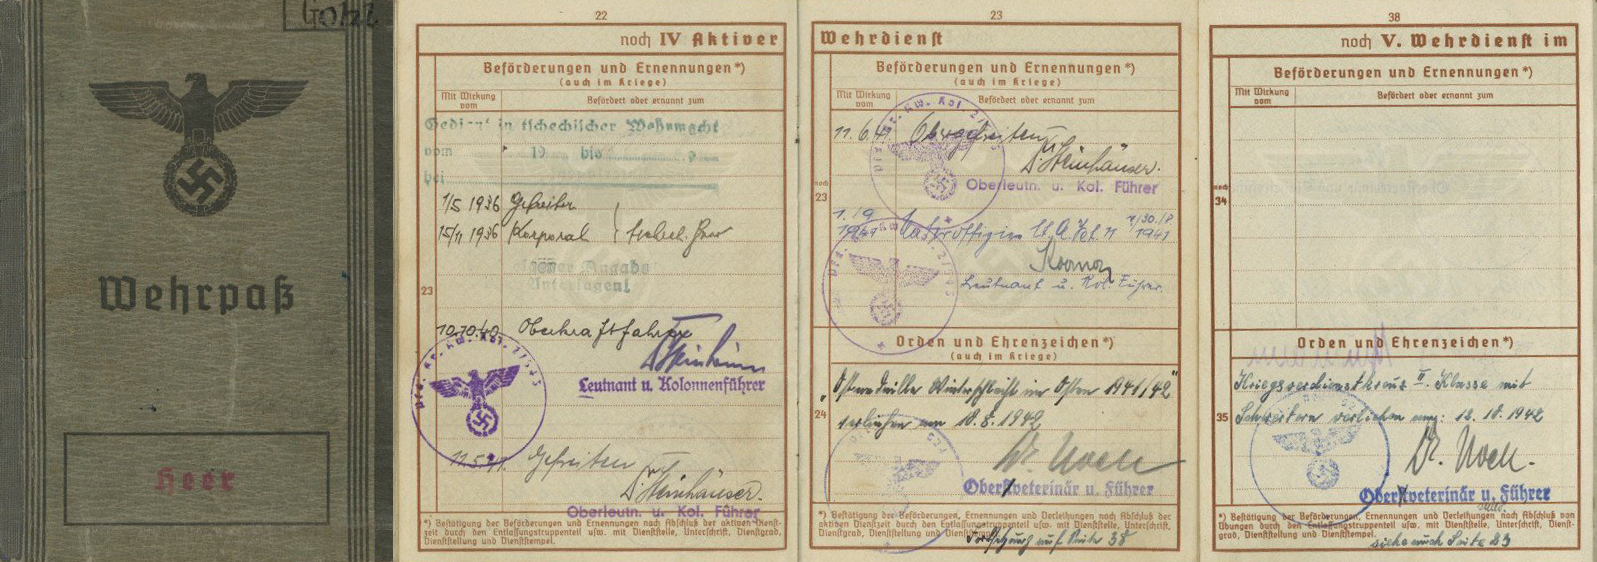 Wehrpaß
Heer
22
noch IV Aktiver
Beförderungen und Ernennungen*)
(auch im Kriege)
Mit Wirkung vom
Befördert oder ernannt zum
Gedient in tschechischer Wehrmacht
vom 19 bis
bei
1/5 1936 Gefreiter
15/11 1936 Korporal
23
eigener Angabe
Unterlagen!
10.10.40 Oberkraftfahrer
Leutnant u. Kolonnenführer
11.5.41 Gefreiten
Steinhäuser.
Oberleutn. u. Kol. Führer
*) Bestätigung der Beförderungen und Ernennungen nach Abschluß der aktiven Dienst-
zeit durch den Entlassungstruppenteil usw. mit Dienststelle, Unterschrift, Dienstgrad,
Dienststellung und Dienststempel.
23
Wehrdienst
Beförderungen und Ernennungen*)
(auch im Kriege)
Mit Wirkung vom
Befördert oder ernannt zum
11.6.41 Obergefreiten
Steinhäuser.
Oberleutn. u. Kol. Führer
noch 23
1./9 1941 Unteroffizier
1941
Leutnant u. Kol. Führer
Orden und Ehrenzeichen*)
(auch im Kriege)
"Ostmedaille Winterschlacht im Osten 1941/42"
24
verliehen am 10.8.1942
Dr.
Oberveterinär u. Führer
*) Bestätigung der Beförderungen, Ernennungen und Verleihungen nach Abschluß der
aktiven Dienstzeit durch den Entlassungstruppenteil usw. mit Dienststelle, Unterschrift,
Dienstgrad, Dienststellung und Dienststempel.
Fortsetzung auf Seite 38
38
noch V. Wehrdienst im
Beförderungen und Ernennungen*)
Mit Wirkung vom
Befördert oder ernannt zum
noch 34
Orden und Ehrenzeichen*)
Kriegsverdienstkreuz II. Klasse mit
35
Schwertern verliehen am: 12.10.1942
Dr.
Oberveterinär u. Führer
*) Bestätigung der Beförderungen, Ernennungen und Verleihungen nach Abschluß von
Übungen durch den Entlassungstruppenteil usw. mit Dienststelle, Unterschrift, Dienst-
grad, Dienststellung und Dienststempel.
siehe auch Seite 23